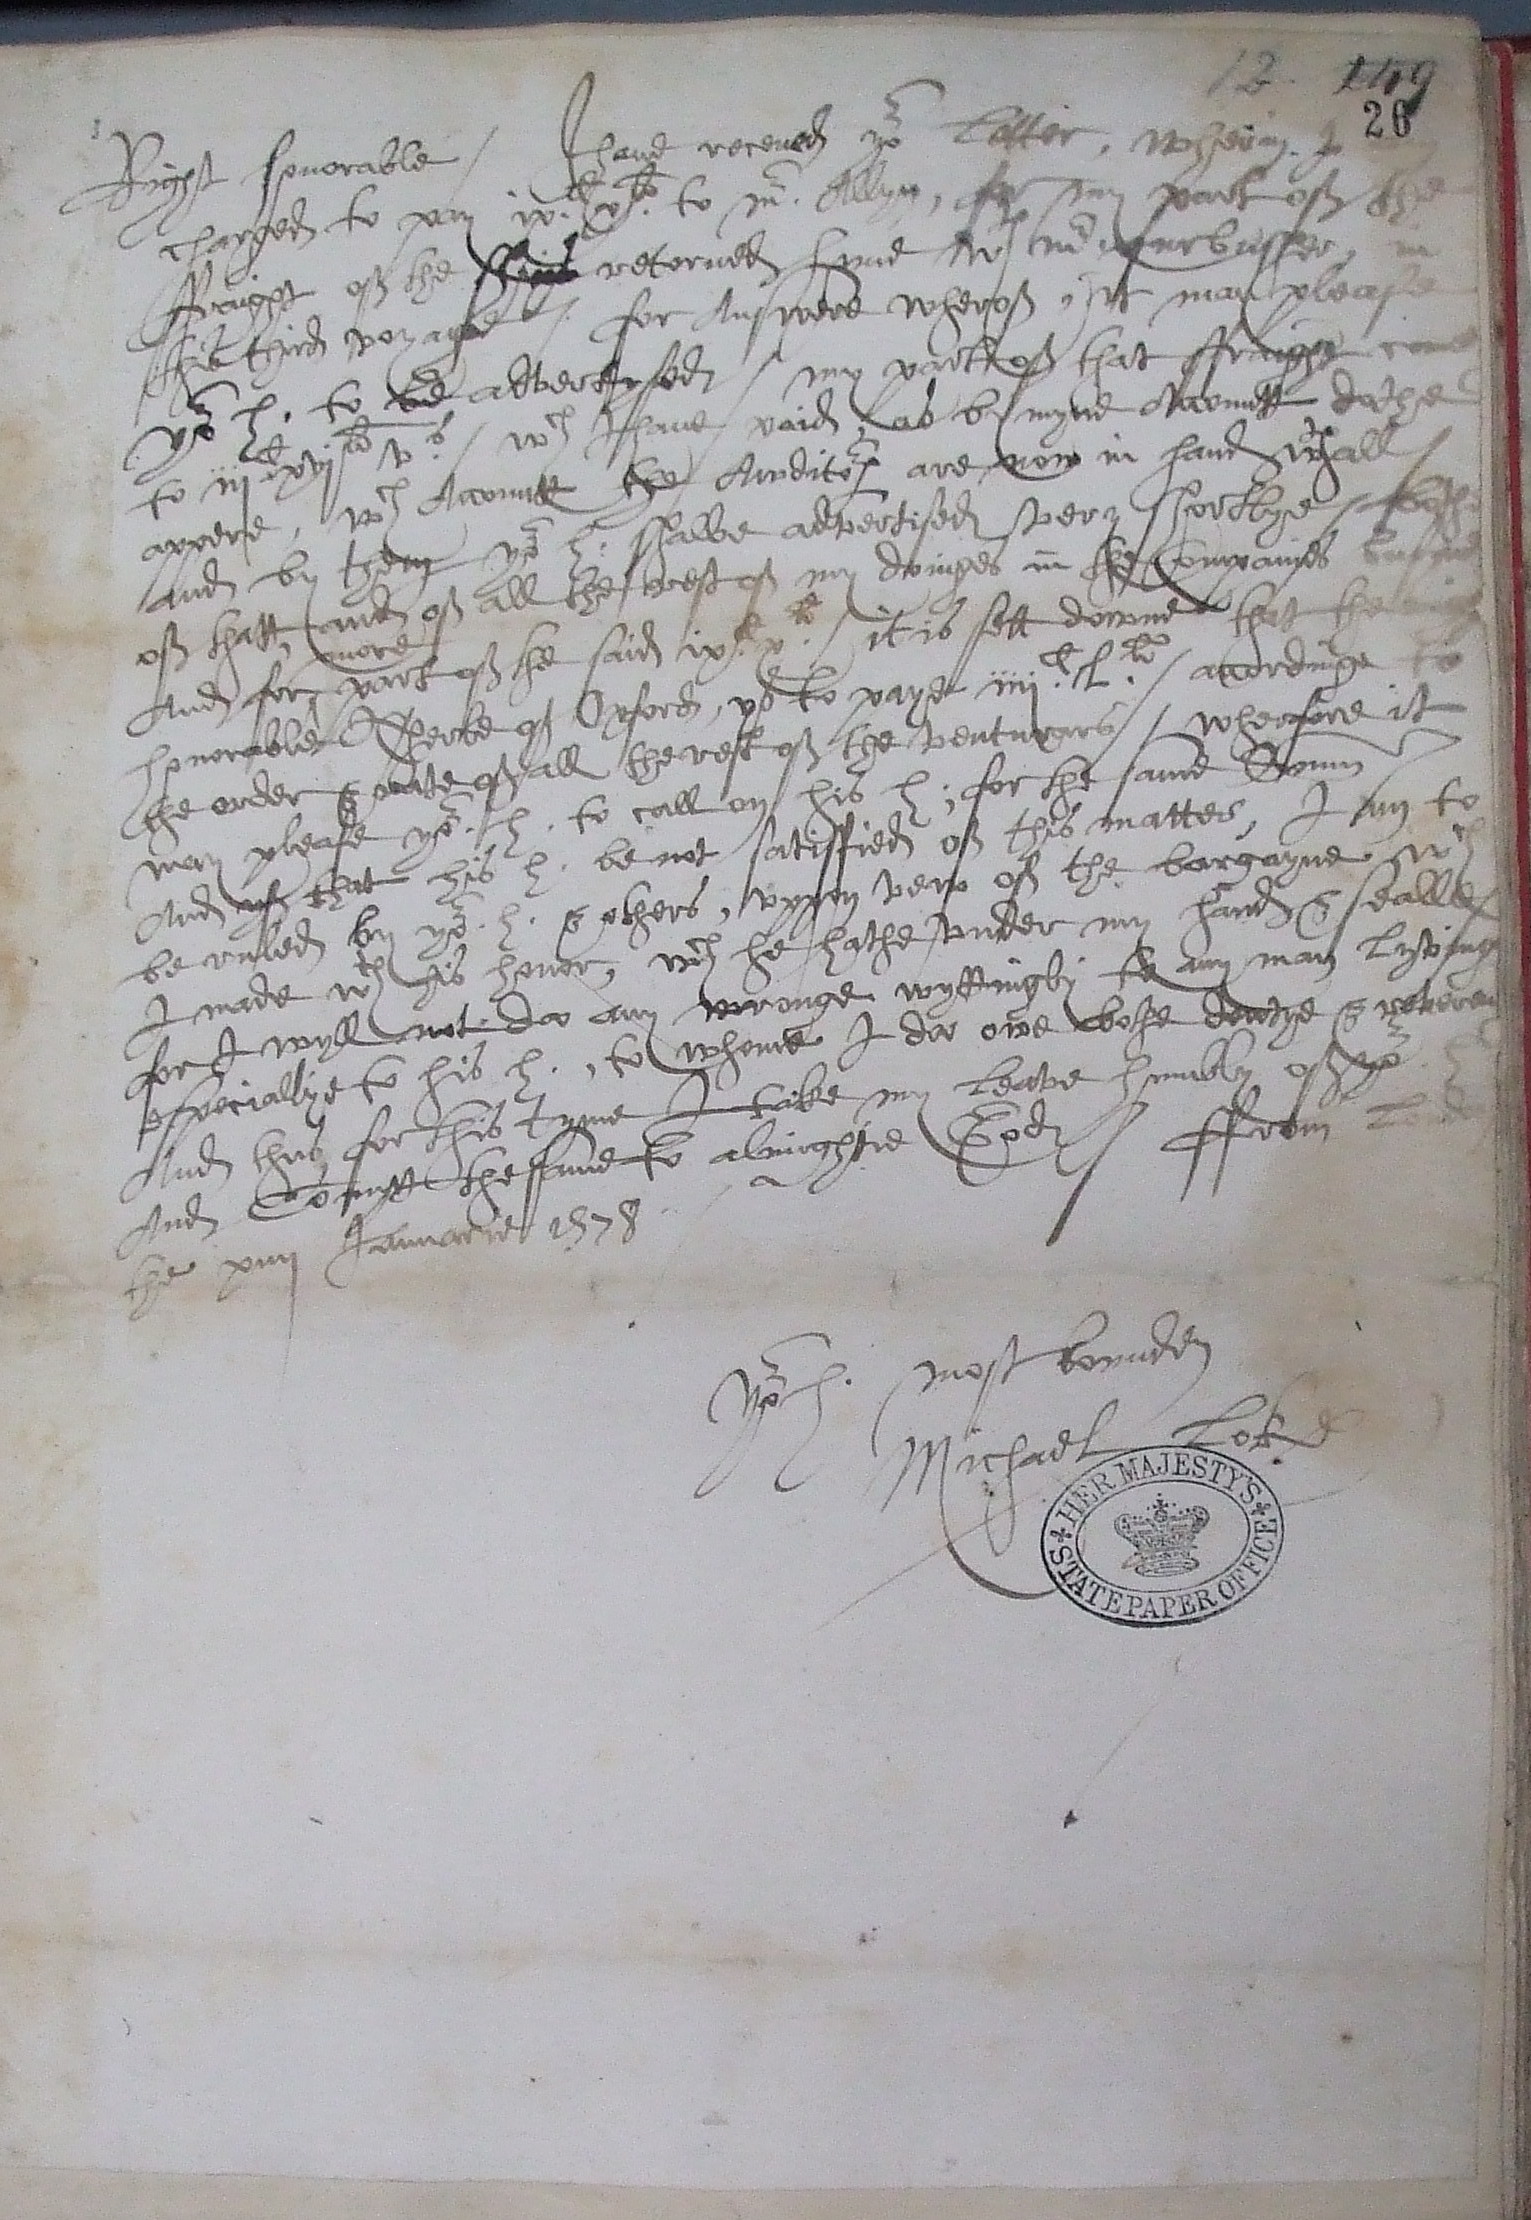 12. 149
26
Right honorable / I have receued yor Letter, wherin I
charged to pay ixC. xlb. to mr. Allyn, for my part off the
ffraight off the Ships retorned home wth mr. ffurbusher, in
this third voyage /. for Answere wheroff, it may please
yor h. to be advertysed / my part off that ffraight
to iiiC xvjlb vs. / wch I have paid, as by myne Accountt dothe
appere, wch Accountt the Auditors are now in hand wthall /
and by them yor h. shalbe advertised very shortlye / bothe
off thatt, and off all the rest off my doinges in the Companies
And for more part off the said ixC. xlb. / it is sett downe that the
honorable Therle off Oxford, ys to paye iiiiC. Llb. / accordinge to
the order & rate off all the rest off the venturars / wherfore it
may please yor. h. to call on his h; for the same Somm
And yf that his h. be not satisffied off this matter, I am to
be ruled by yor. h. & others, uppon vew off the bargayne wch
I made wth his honor, wch he hathe under my hand & sealle /
for I wyll not do any wronge wyttingly to any man lyvinge
especiallye to his h., to whome I do owe bothe dewtye &
And thus for this tyme I take my Leave humbly off yor h
And Comytt the same to almightie God / ffrom
the xiiij Januarie 1578
yor h. most bounden
Michael Lok
HER MAJESTY'S STATE PAPER OFFICE